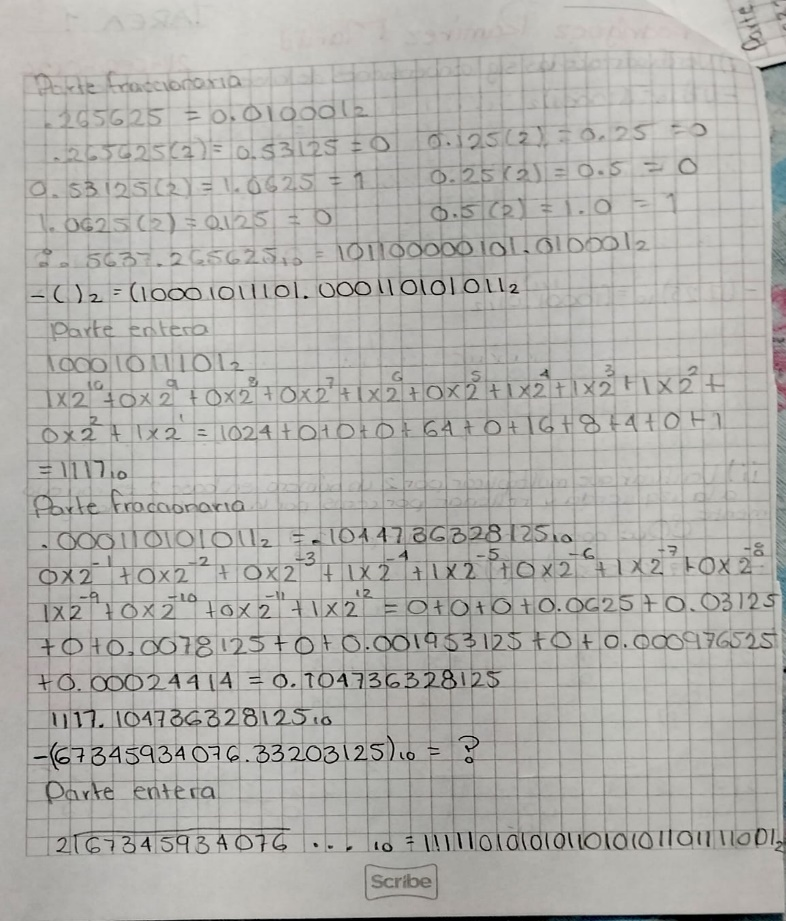 Parte
Parte fraccionaria
.265625 = 0.010001₂
.265625(2) = 0.53125 = 0 0.125(2) = 0.25 = 0
0.53125(2) = 1.0625 = 1 0.25(2) = 0.5 = 0
1.0625(2) = 0.125 = 0 0.5(2) = 1.0 = 1
∴ 5637.265625₁₀ = 101100000101.010001₂
-( )₂ = (10001011101.000110101011₂
Parte entera
10001011101₂
1x2¹⁰+0x2⁹+0x2⁸+0x2⁷+1x2⁶+0x2⁵+1x2⁴+1x2³+1x2²+
0x2²+1x2¹ = 1024+0+0+0+64+0+16+8+4+0+1
= 1117₁₀
Parte fraccionaria
.000110101011₂ = .104736328125₁₀
0x2⁻¹+0x2⁻²+0x2⁻³+1x2⁻⁴+1x2⁻⁵+0x2⁻⁶+1x2⁻⁷+0x2⁻⁸
1x2⁻⁹+0x2⁻¹⁰+0x2⁻¹¹+1x2¹² = 0+0+0+0.0625+0.03125
+0+0.0078125+0+0.001953125+0+0.000976525
+0.00024414 = 0.104736328125
1117.104736328125₁₀
-(67345934076.33203125)₁₀ = ?
Parte entera
2√67345934076 ... ₁₀ = 11111010101011010101101111001₂
Scribe